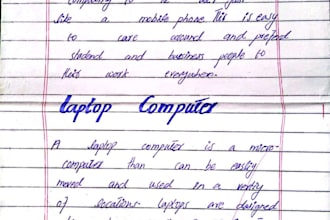 to be
like a mobile phone this is easy
to care around and prefeed
student and business people to
this work everywhere.
Laptop Computer
A laptop computer is a micro-
computer than can be easily
moved and used in a
of locations. laptops are designed